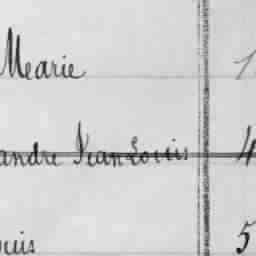 Marie
andre Jean Louis 4
ouis 5